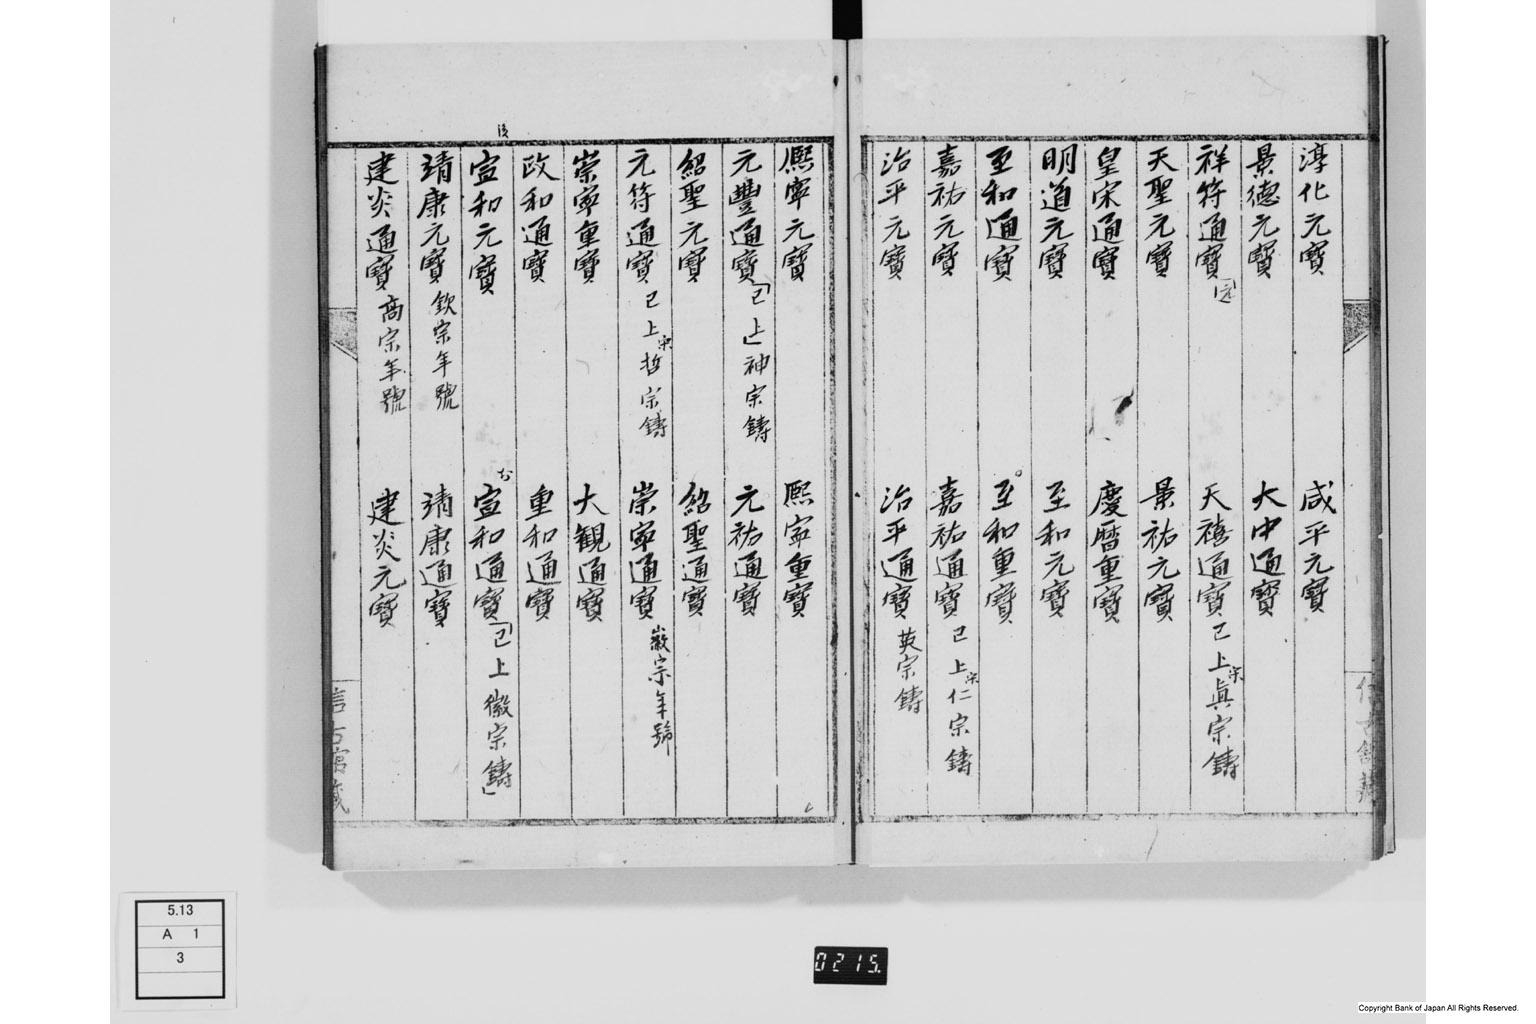 淳化元寶　咸平元寶
景德元寶　大中通寶
祥符通寶　天禧通寶 已上宋眞宗鑄
天聖元寶　景祐元寶
皇宋通寶　慶曆重寶
明道元寶　至和元寶
至和通寶　至和重寶
嘉祐元寶　嘉祐通寶 已上宋仁宗鑄
治平元寶　治平通寶 英宗鑄
熙寧元寶　熙寧重寶
元豐通寶「已上」神宗鑄　元祐通寶
紹聖元寶　紹聖通寶
元符通寶 已上宋哲宗鑄　崇寧通寶 徽宗年號
崇寧重寶　大観通寶
政和通寶　重和通寶
宣和元寶　宣和通寶「已上徽宗鑄」
靖康元寶 欽宗年號　靖康通寶
建炎通寶 高宗年號　建炎元寶
5.13
A 1
3
0215.
Copyright Bank of Japan All Rights Reserved.